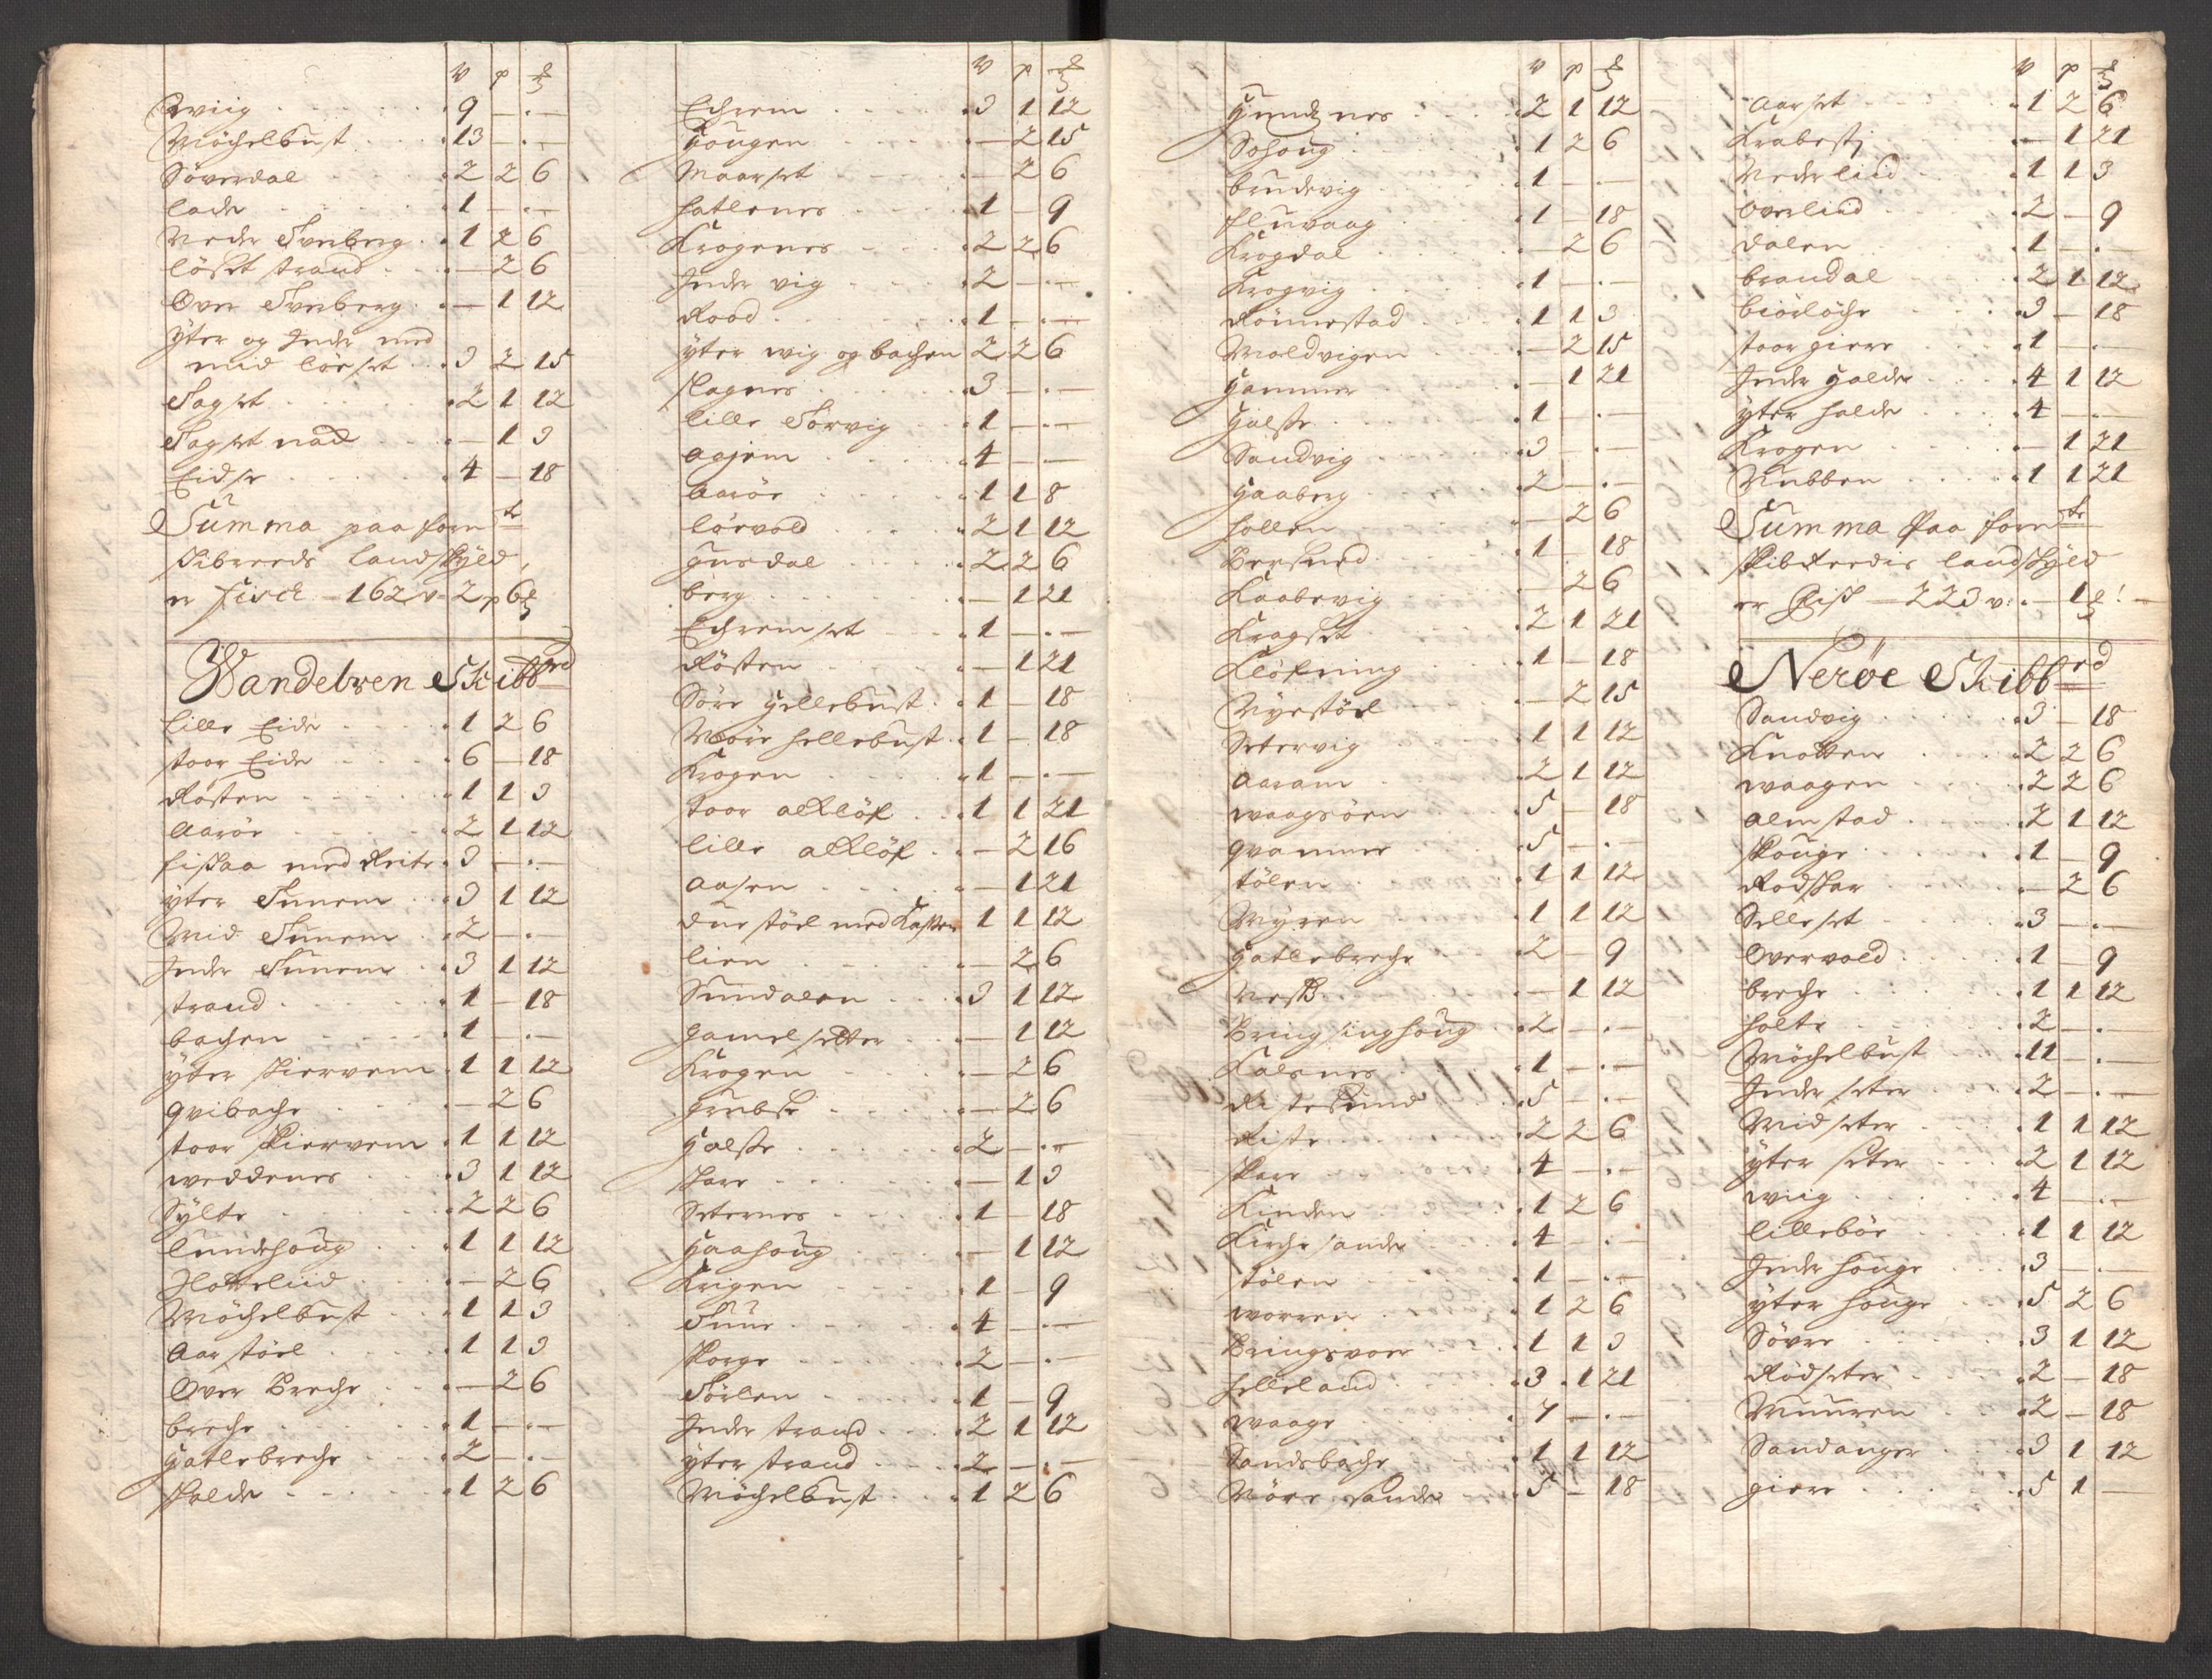 V p ℔
Wiig 9 – . –
Möchelbust 13 – . –
Söverdal 2 2 6
lade 1 – . –
Neder Svenberg 1 2 6
löset strand – 2 6
Over Svenberg – 1 12
yter og Inder med
mid lörset 3 2 15
Sagset 2 1 12
Sagset – 1 3
Eidse 4 – 18
Summa paa form te
skibreeds landskyld,
er fisch – 162 v 2 p 6 ℔
Wandelven Skibbred
lille Eide 1 2 6
stoor Eide 6 – 18
Rösten 1 1 3
Aaröe 2 1 12
fiskaa med Reite 3 – . –
yter Sunem 3 1 12
Mid Sunem 2 – . –
Inder Sunem 3 1 12
strand 1 – 18
bachen 1 – . –
yter skiervem 1 1 12
qvibache – 2 6
stoor skiervem 1 1 12
weddenes 3 1 12
Sylte 2 2 6
lundehoug 1 1 12
Slottelid – 2 6
Möchelbust 1 1 3
Aarstöel 1 1 3
Over Breche – 2 6
breche 1 – . –
Hatlebreche 2 – . –
skalde 1 2 6
V p ℔
Echrem 3 1 12
Hougen – 2 15
Maarset – 2 6
hatlenes 1 – 9
Krogenes 2 2 6
Inder vig 2 – . –
Rood 1 – . –
yter wig og bachen 2 2 6
slagnes 3 – . –
lille Sörvig 1 – . –
aajem 4 – . –
Aaröe 1 1 8
lörvold 2 1 12
gusdal 2 2 6
berg – 1 21
Echremset 1 – . –
Rösten – 1 21
Söre Hellebust 1 – 18
Nöre hellebust 1 – 18
Krogen 1 – . –
stoor aklöf 1 1 21
lille aklöf – 2 16
Aasen – 1 21
Duestöel med Kasten 1 1 12
lien – 2 6
Sundalen 3 1 12
gamelsetter – 1 12
Krogen – 2 6
grubse – 2 6
Halse 2 – . –
skare – 1 3
Seternes 1 – 18
Haahoug – 1 12
Krigen 1 – 9
Suur 4 – . –
skorge 2 – . –
Sörlen 1 – 9
Inder strand 2 1 12
yter strand 2 – . –
Möchelbust 1 2 6
V p ℔
Hundsnes 2 1 12
Sohoug 1 2 6
brudevig 1 – . –
fluvaag 1 – 18
Krogdal – 2 6
Krogvig 1 – . –
Rönnestad 1 1 3
Moldvigen – 2 15
Hammer – 1 21
Halse 1 – . –
Sandvig 3 – . –
Haaberg 2 – . –
hollen – 2 6
Berknes 1 – 18
Kaabevig – 2 6
Kragset 2 1 21
Klöfning 1 – 18
Nyestöel – 2 15
Setervig 1 1 12
Aaram 2 1 12
waagsören 5 – 18
qvamme 5 – . –
stölen 1 1 12
Myren 1 1 12
Hatlebreche 2 – 9
Nesse – 1 12
Bringsinghoug 2 – . –
Kalsnes 1 – . –
Ristesund 5 – . –
Riste 2 2 6
skare 4 – . –
Kinden 1 2 6
Kirchesande 4 – . –
stölen 1 – . –
worren 1 2 6
Bringsvoer 1 1 3
helleland 3 1 21
waage 7 – . –
Sandsbache 1 1 12
Nöre sande 5 – 18
V p ℔
Aarset 1 2 6
Krabestj – 1 21
Nederliid 1 1 3
Overliid 2 – 9
dalen 1 – . –
brandal 2 1 12
biörlöche 3 – 18
stoor giere 1 – . –
Inder Halde 4 1 12
yter halde 4 – . –
Krogen – 1 21
Nubben 1 1 21
Summa Paa form te
skibReedis landskyld
er Fisk – 223 v: . – 1 ℔ ! –
Neröe Skibbrd
Sandvig 3 – 18
Knotten 2 2 6
waagen 2 2 6
almstad 2 1 12
skouge 1 – 9
Rodskar – 2 6
Selleset 3 – . –
Overvold 1 – 9
breche 1 1 12
holte 2 – . –
Möchelbust 11 – . –
Inder seter 2 – . –
Midseter 1 1 12
yter seter 2 1 12
wiig 4 – . –
lilleböe 1 1 12
Inder houge 3 – . –
yter houge 5 2 6
Sövre 3 1 12
Rödseter 2 – 18
Muuren 2 – 18
Sandanger 3 1 12
giere 5 1 –